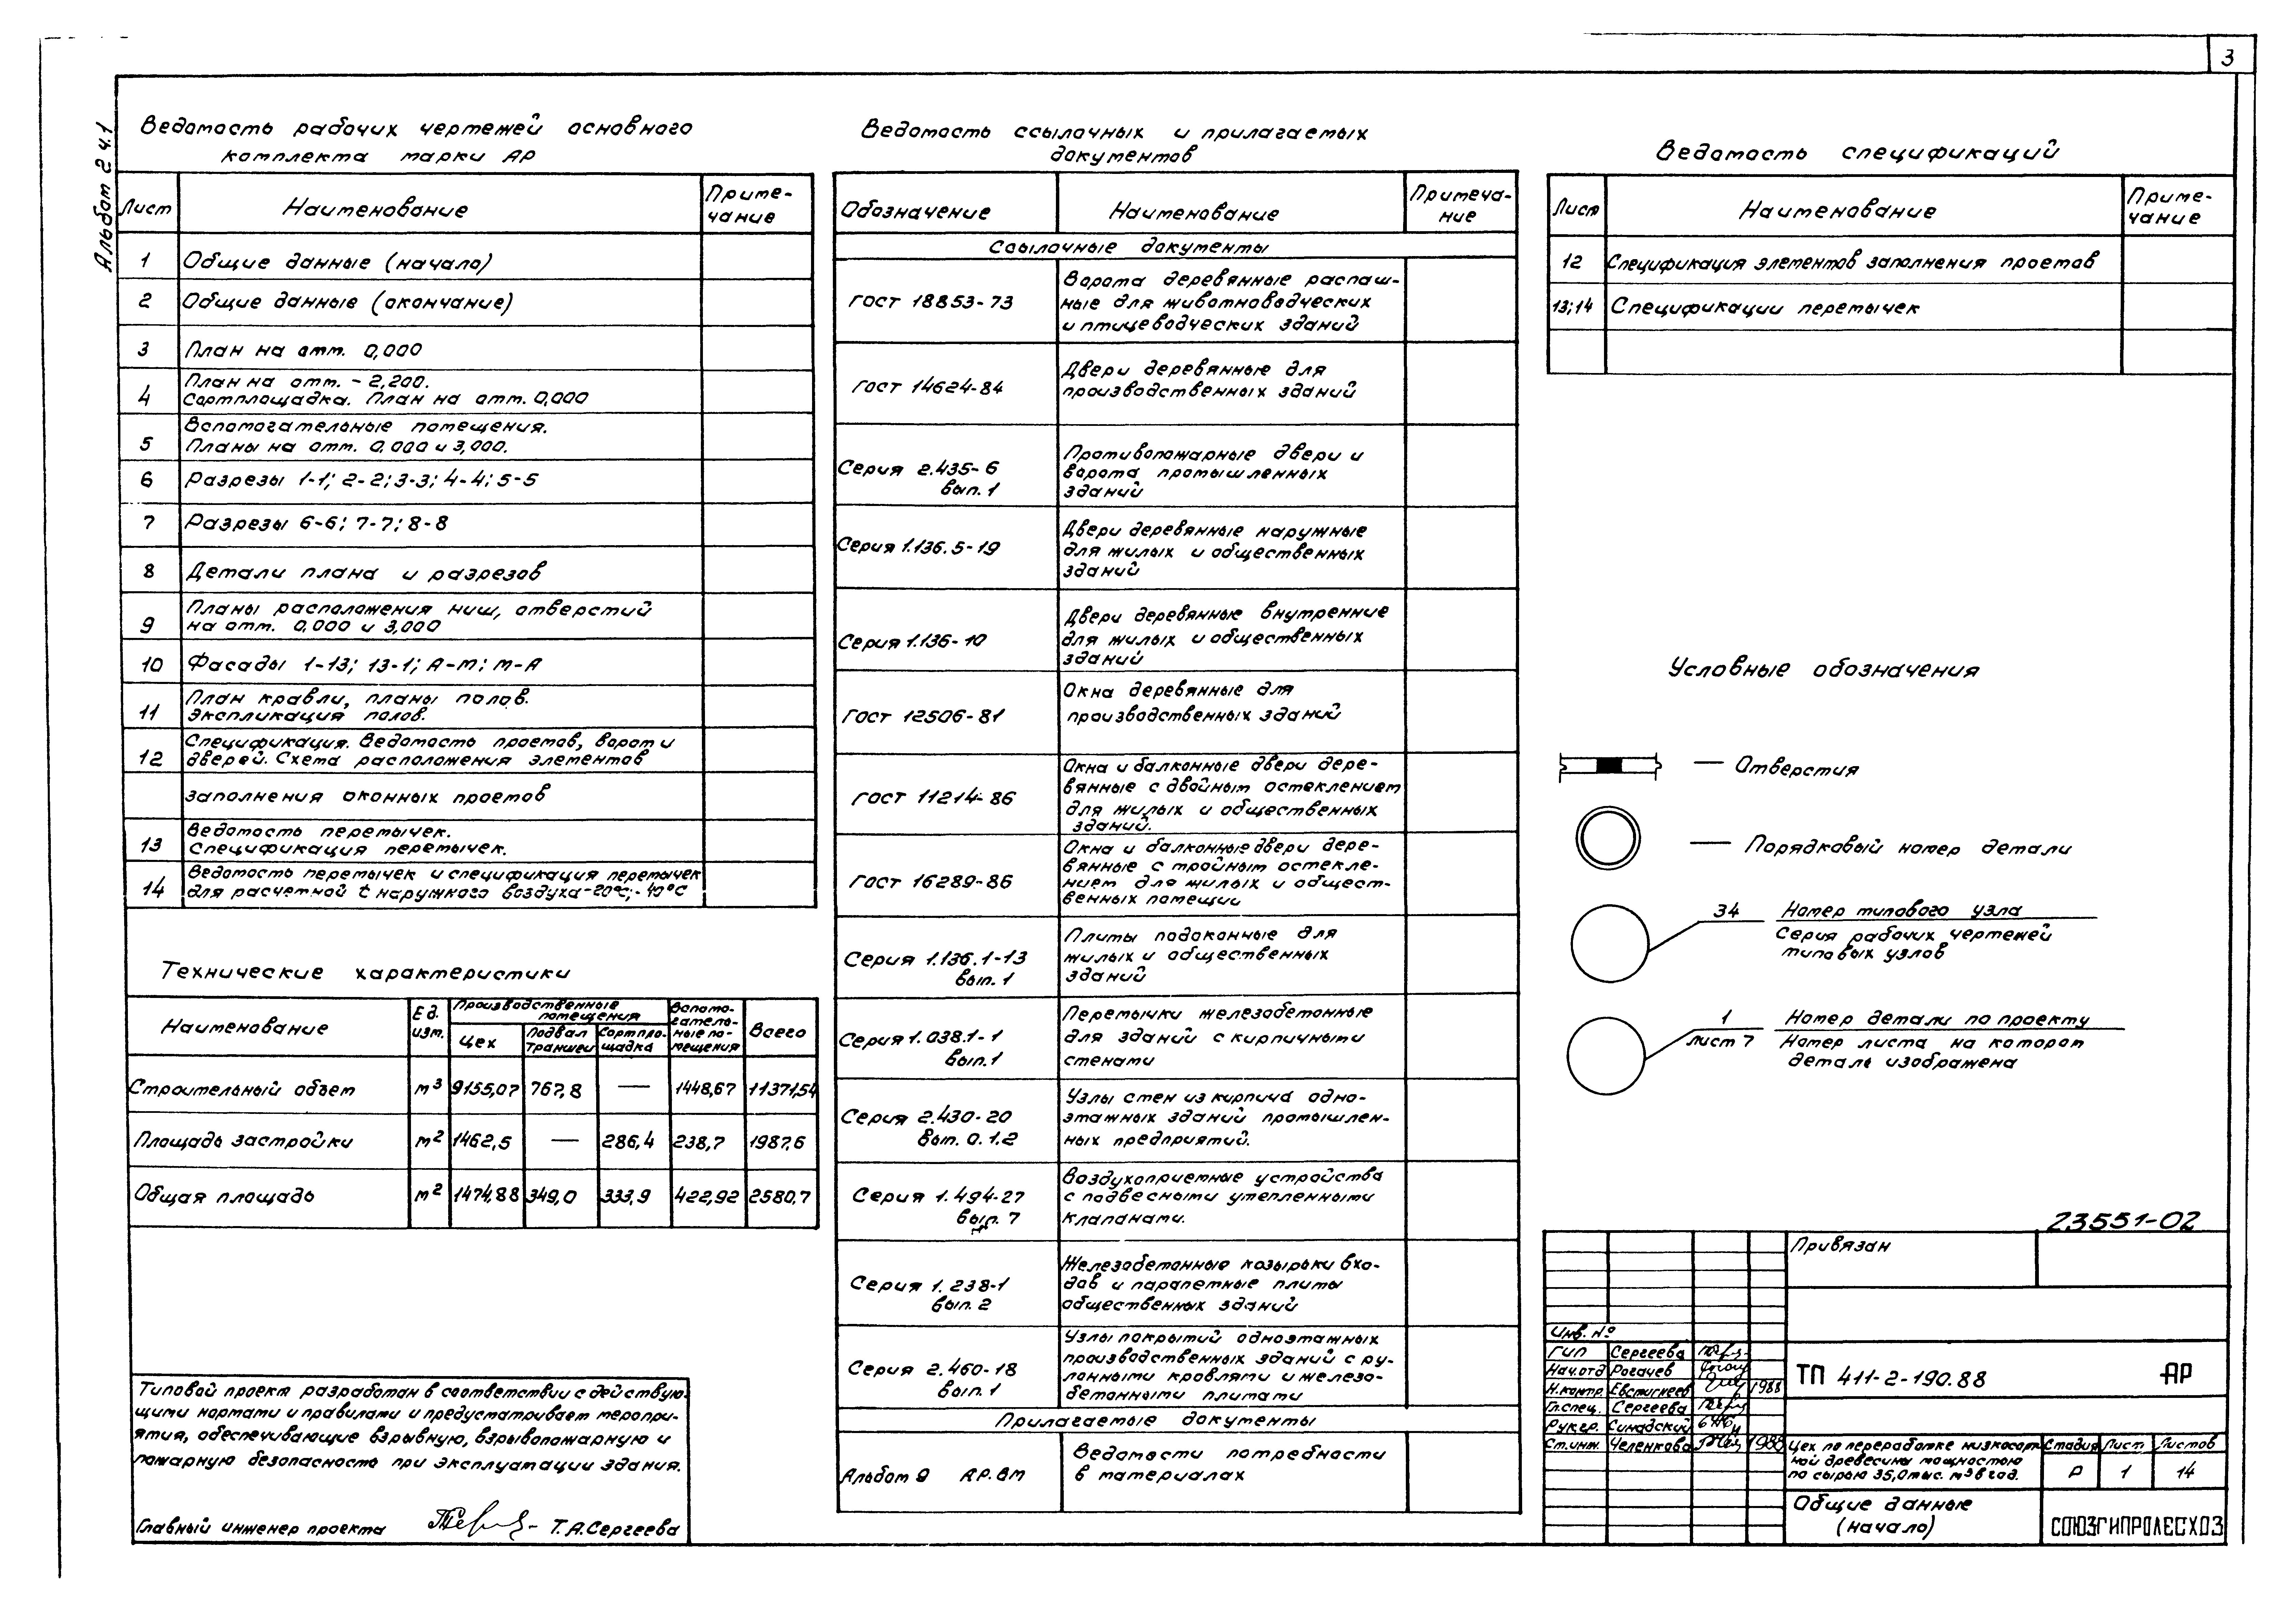 3
Альбом 2 ч.1
Ведомость рабочих чертежей основного
комплекта марки АР
Лист
Наименование
Приме-
чание
1 Общие данные (начало)
2 Общие данные (окончание)
3 План на отм. 0,000
План на отм. - 2,200.
4 Сортплощадка. План на отм. 0,000
Вспомогательные помещения.
5 Планы на отм. 0,000 и 3,000.
6 Разрезы 1-1; 2-2; 3-3; 4-4; 5-5
7 Разрезы 6-6; 7-7; 8-8
8 Детали плана и разрезов
Планы расположения ниш, отверстий
9 на отм. 0,000 и 3,000
10 Фасады 1-13; 13-1; А-т; т-А
План кровли, планы полов.
11 Экспликация полов.
Спецификация. Ведомость проемов, ворот и
12 дверей. Схема расположения элементов
заполнения оконных проемов
Ведомость перемычек.
13 Спецификация перемычек.
Ведомость перемычек и спецификация перемычек
14 для расчетной t наружного воздуха -20°С; -40°С
Технические характеристики
Наименование
Ед.
изм.
Производственные
помещения
Цех
Подвал
Траншеи
Сортпло-
щадка
Вспомо-
гатель-
ные по-
мещения
Всего
Строительный объем м³ 9155,07 767,8 — 1448,67 11371,54
Площадь застройки м² 1462,5 — 286,4 238,7 1987,6
Общая площадь м² 1474,88 349,0 333,9 422,92 2580,7
Типовой проект разработан в соответствии с действую-
щими нормами и правилами и предусматривает меропри-
ятия, обеспечивающие взрывную, взрывопожарную и
пожарную безопасность при эксплуатации здания.
Главный инженер проекта Т.А.Сергеева
Ведомость ссылочных и прилагаемых
документов
Обозначение
Наименование
Примеча-
ние
Ссылочные документы
ГОСТ 18853-73
Ворота деревянные распаш-
ные для животноводческих
и птицеводческих зданий
ГОСТ 14624-84
Двери деревянные для
производственных зданий
Серия 2.435-6
вып. 1
Противопожарные двери и
ворота промышленных
зданий
Серия 1.136.5-19
Двери деревянные наружные
для жилых и общественных
зданий
Серия 1.136-10
Двери деревянные внутренние
для жилых и общественных
зданий
ГОСТ 12506-81
Окна деревянные для
производственных зданий
ГОСТ 11214-86
Окна и балконные двери дере-
вянные с двойным остеклением
для жилых и общественных
зданий.
ГОСТ 16289-86
Окна и балконные двери дере-
вянные с тройным остекле-
нием для жилых и общест-
венных помещии
Серия 1.136.1-13
вып. 1
Плиты подоконные для
жилых и общественных
зданий
Серия 1.038.1-1
вып.1
Перемычки железобетонные
для зданий с кирпичными
стенами
Серия 2.430-20
вып. 0.1.2
Узлы стен из кирпича одно-
этажных зданий промышлен-
ных предприятий.
Серия 1.494-27
вып. 7
Воздухоприемные устройства
с подвесными утепленными
клапанами.
Серия 1.238-1
вып. 2
Железобетонные козырьки вхо-
дов и парапетные плиты
общественных зданий
Серия 2.460-18
вып. 1
Узлы покрытий одноэтажных
производственных зданий с ру-
лонными кровлями и железо-
бетонными плитами
Прилагаемые документы
Альбом 9 АР.ВМ
Ведомости потребности
в материалах
Ведомость спецификаций
Лист
Наименование
Приме-
чание
12 Спецификация элементов заполнения проемов
13;14 Спецификации перемычек
Условные обозначения
— Отверстия
— Порядковый номер детали
34 Номер типового узла
Серия рабочих чертежей
типовых узлов
1 Номер детали по проекту
лист 7 Номер листа на котором
деталь изображена
23551-02
Привязан
Инв. №
ГИП Сергеева
Нач.отд Рогачев
Н.контр. Евстигнеев 1988
Гл.спец. Сергеева
Рук.гр. Синадский
Ст.инж. Челенкова 1988
ТП 411-2-190.88 АР
Цех по переработке низкосорт-
ной древесины мощностью
по сырью 35,0 тыс. м³ в год.
Стадия Лист Листов
Р 1 14
Общие данные
(начало)
СОЮЗГИПРОЛЕСХОЗ